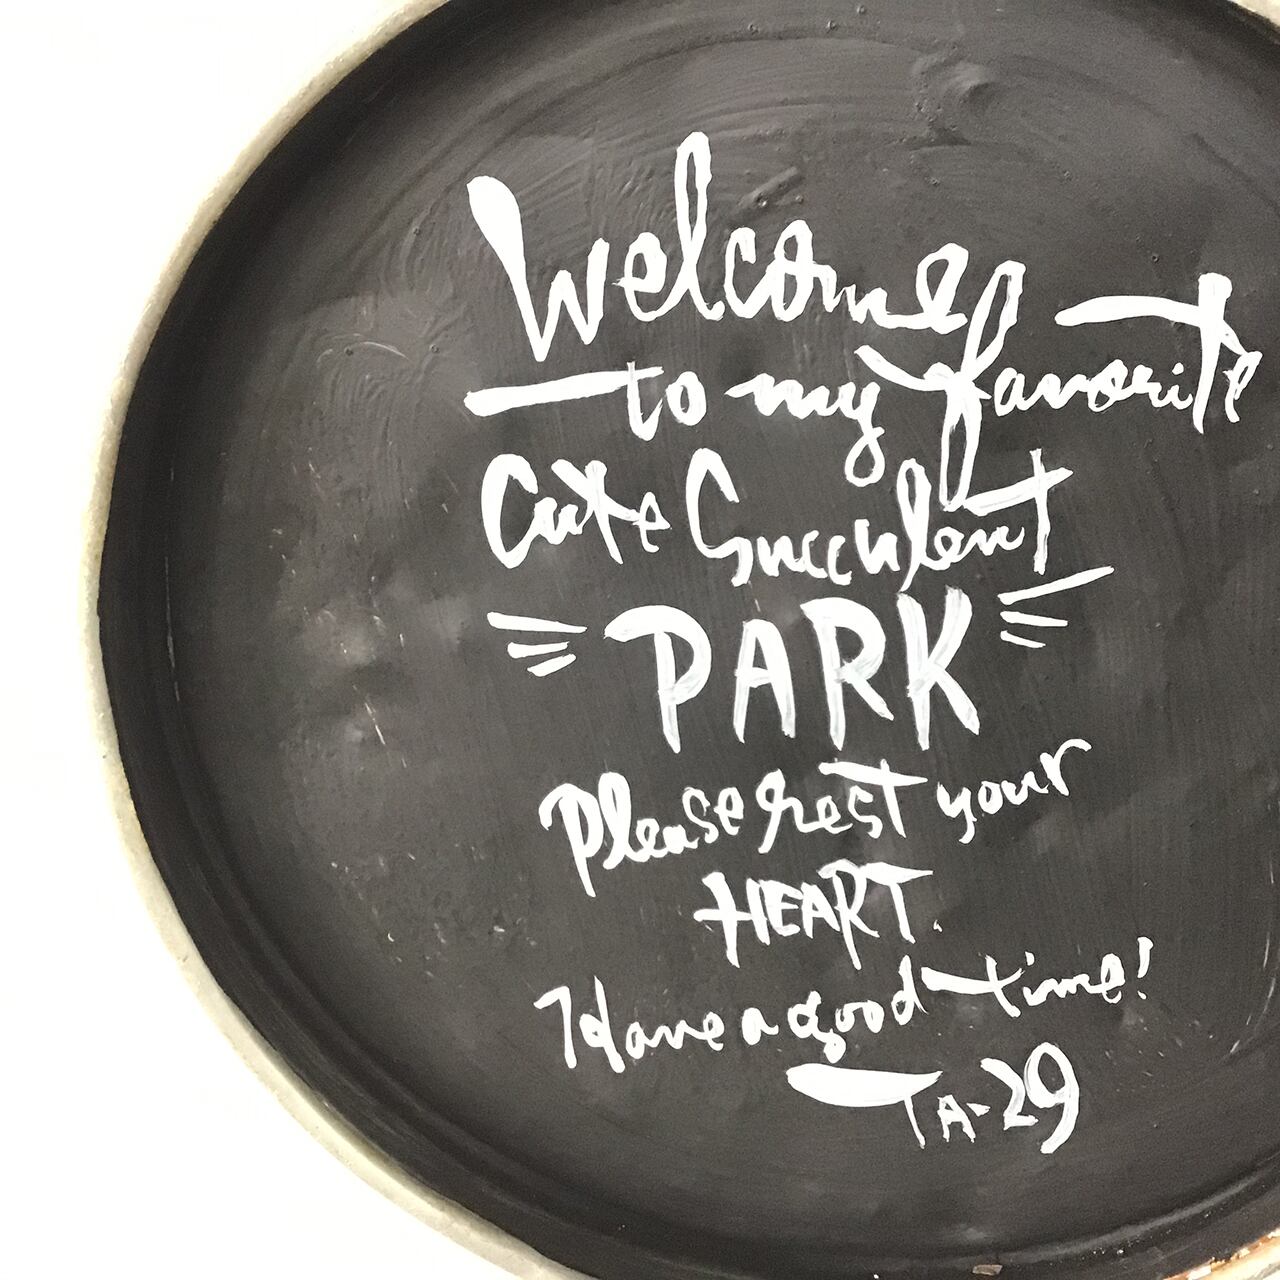 Welcome
to my favorite
Cute Succulent
PARK
Please rest your
HEART.
Have a good time!
TA-29